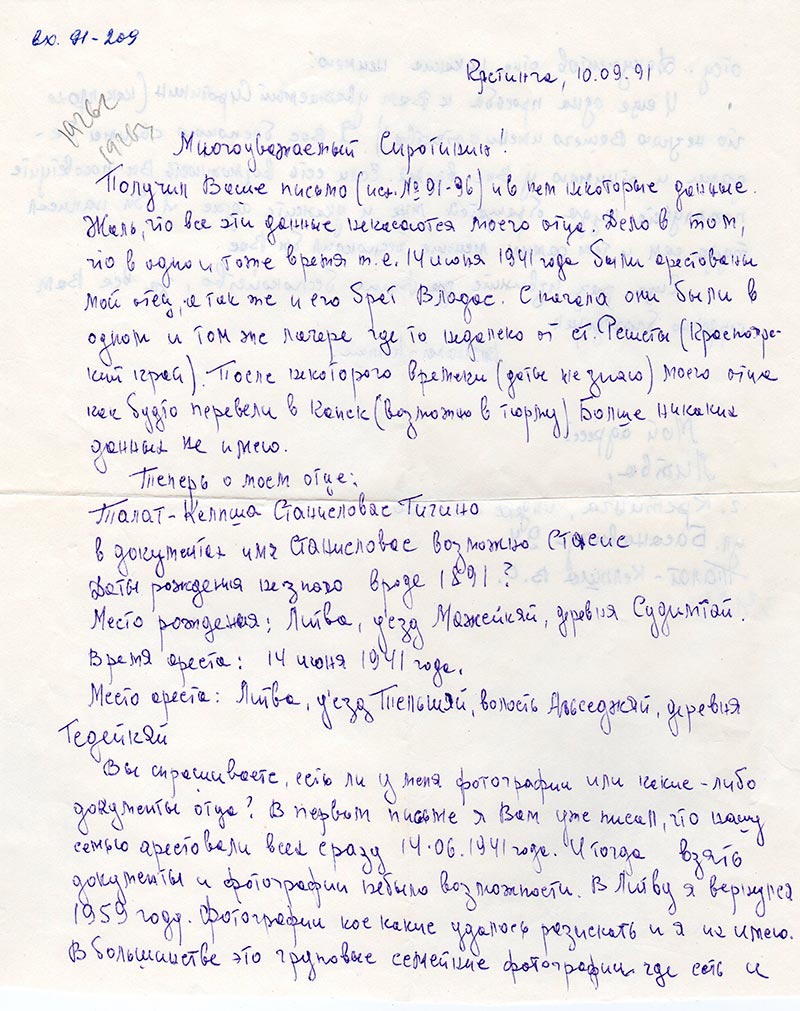 вх. 91-209
Кретинга, 10.09.91
1926г
1926г
Многоуважаемый Сиротинин!
Получил Ваше письмо (исх. № 91-96) и в нем некоторые данные.
Жаль, что все эти данные некасаются моего отца. Дело в том,
что в одно и тоже время т.е. 14 июня 1941 года были арестованы
мой отец, а так же и его брат Владас. Сначала они были в
одном и том же лагере где то недалеко от ст. Решеты (Краснояр-
кий край). После некоторого времени (даты не знаю) моего отца
как будто перевели в Канск (возможно в тюрму) Болше никаких
данных не имею.
Теперь о моем отце:
Талат-Келпша Станисловас Тичино
в документах имя Станисловас возможно Стасис
Даты рождения не знаю вроде 1891?
Место рождения: Литва, уезд Мажейкяй, деревня Судимтай.
Время ареста: 14 июня 1941 года.
Место ареста: Литва, уезд Тельшяй, волость Альседжяй, деревня
Гедейкяй
Вы спрашиваете, есть ли у меня фотографии или какие-либо
документы отца? В первом письме я Вам уже писал, что нашу
семью арестовали всех сразу 14.06.1941 года. И тогда взять
документы и фотографии небыло возможности. В Литву я вернулся
1959 году. Фотографии кое какие удалось разискать и я их имею.
В большинстве это груповые семейние фотографии где есть и